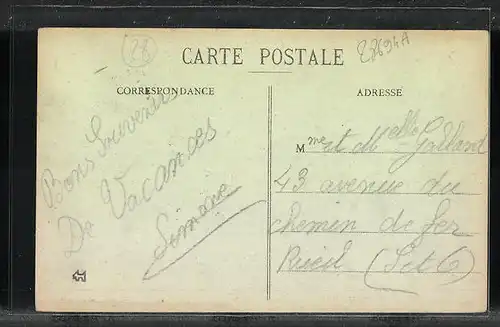 28
27694A
CARTE POSTALE
CORRESPONDANCE
ADRESSE
Bons Souvenirs
De Vacances
Simone
Mme et Melle Galland
43 avenue du
chemin de fer
Rueil (S et O)